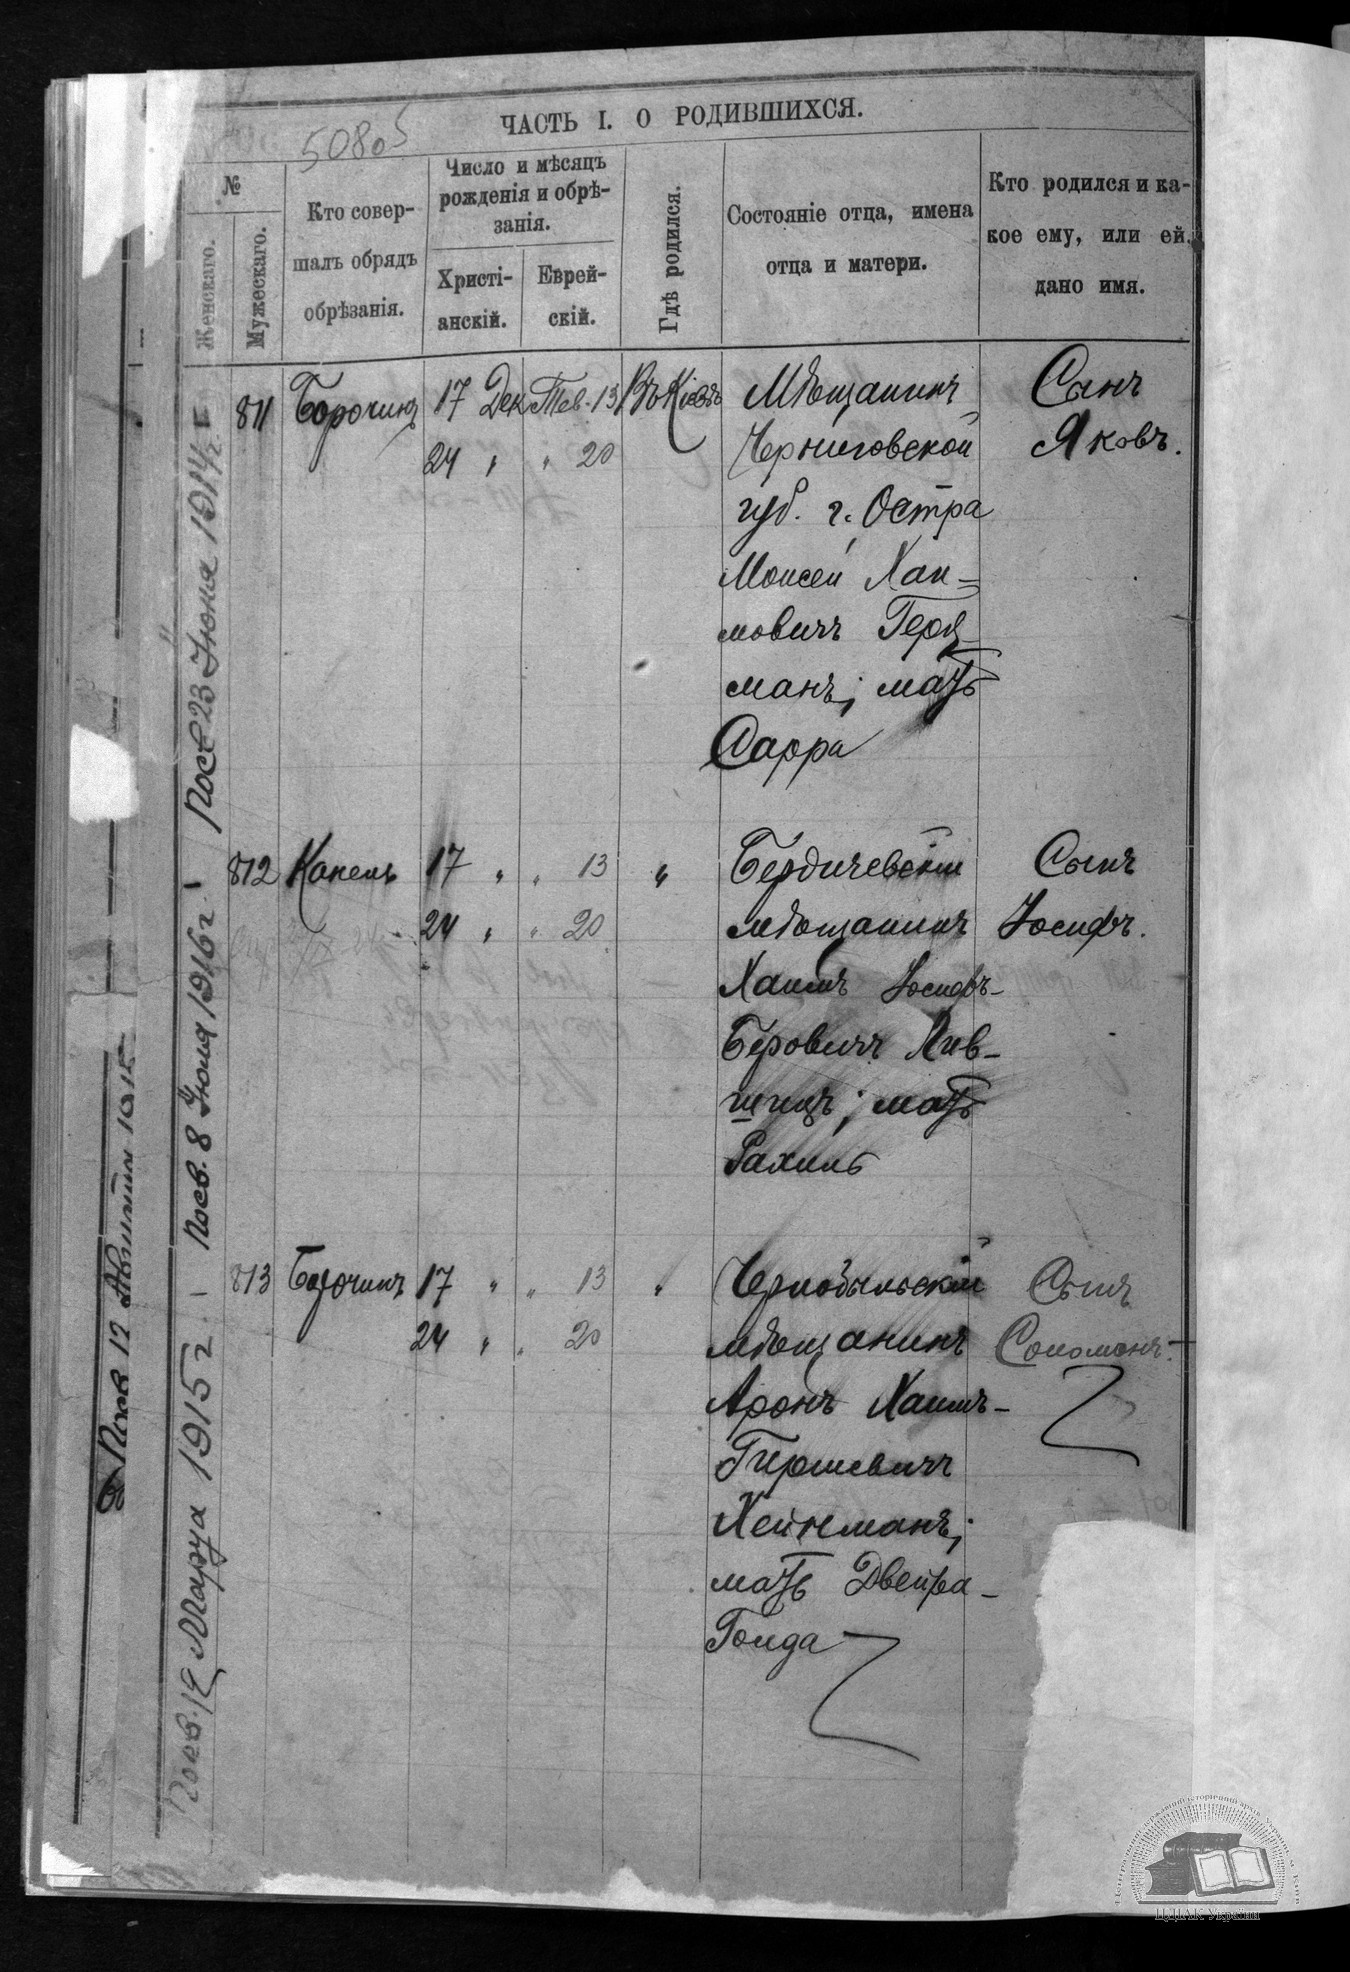 ЧАСТЬ I. О РОДИВШИХСЯ.
50805
№
Женскаго.
Мужескаго.
Кто совер-
шалъ обрядъ
обрѣзанія.
Число и мѣсяцъ
рожденія и обрѣ-
занія.
Христі-
анскій.
Еврей-
скій.
Гдѣ родился.
Состояніе отца, имена
отца и матери.
Кто родился и ка-
кое ему, или ей,
дано имя.
811 Борочинъ 17 Дек Тев. 13 Въ Кіевѣ Мѣщанинъ Сынъ
24 " " 20 Черниговской Яковъ.
губ. г. Остра
Моисей Хаи-
мовичъ
манъ; мать
Сарра
812 Капель 17 " " 13 " Бердичевскій Сынъ
24 " " 20 мѣщанинъ Іосифъ.
Хаимъ Іосифъ-
Беровичъ Лив-
шицъ; мать
Рахиль
813 Борочинъ 17 " " 13 " Чернобыльскій Сынъ
24 " " 20 мѣщанинъ Соломонъ.
Аронъ Хаимъ-
Гершевичъ
Хейнманъ;
мать Двейра-
Голда
1914 г.
23 Іюня
8 Іюня 1916 г.
Марта 1915 г.
12 1915
ЦДІАК України